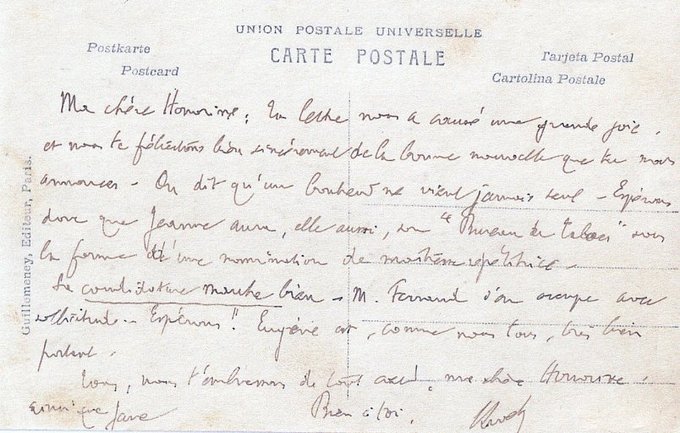 UNION POSTALE UNIVERSELLE
CARTE POSTALE
Postkarte
Postcard
Tarjeta Postal
Cartolina Postale
Guillemeney, Editeur, Paris.
Ma chère Honorine, Ta lettre nous a causé une grande joie,
et nous te félicitons bien sincèrement de la bonne nouvelle que tu nous
annonces - On dit qu'un bonheur ne vient jamais seul - Espérons
donc que Jeanne aura, elle aussi, son "Bureau de tabac" sous
la forme d'une nomination de maîtresse répétitrice -
Sa candidature marche bien - M. Fernand s'en occupe avec
sollicitude - Espérons !! Eugène est, comme nous tous, très bien
portant.
Tous, nous t'embrassons de tout cœur, ma chère Honorine,
ainsi que
Bien à toi.